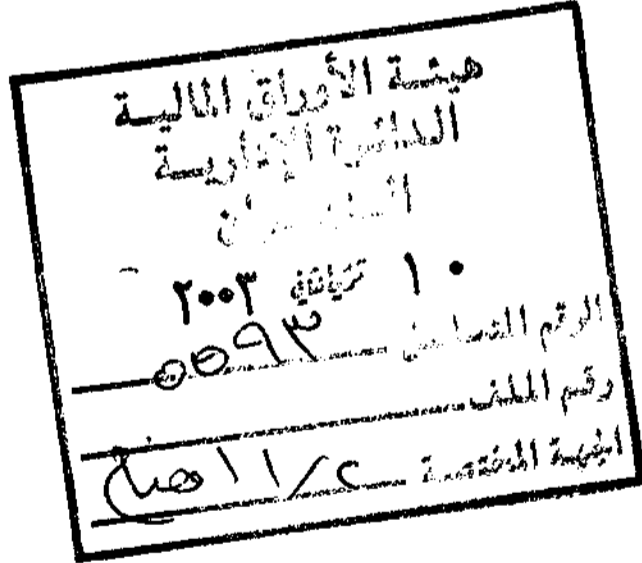 هيئة الأوراق المالية
الدائرة الإدارية
الديوان
١٠ تشرين ثاني ٢٠٠٣
الرقم المتسلسل ٥٥٩٣
رقم الملف
الجهة المختصة